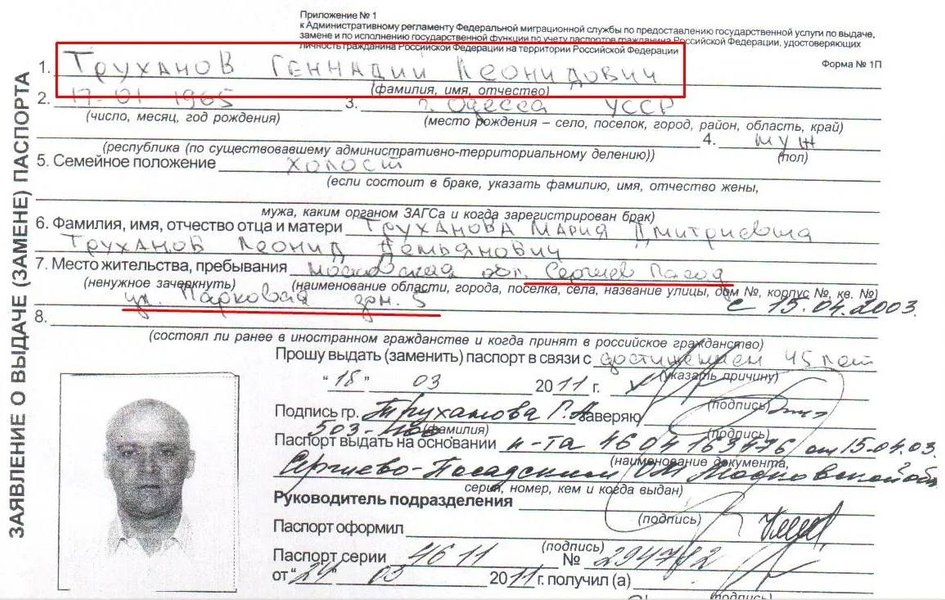 Приложение № 1
к Административному регламенту Федеральной миграционной службы по предоставлению государственной услуги по выдаче,
замене и по исполнению государственной функции по учету паспортов гражданина Российской Федерации, удостоверяющих
личность гражданина Российской Федерации на территории Российской Федерации
Форма № 1П
ЗАЯВЛЕНИЕ О ВЫДАЧЕ (ЗАМЕНЕ) ПАСПОРТА
1. Труханов Геннадий Леонидович
(фамилия, имя, отчество)
2. 17 01 1965 3. г. Одесса УССР
(число, месяц, год рождения) (место рождения – село, поселок, город, район, область, край)
4. муж
(республика (по существовавшему административно-территориальному делению)) (пол)
5. Семейное положение холост
(если состоит в браке, указать фамилию, имя, отчество жены,
мужа, каким органом ЗАГСа и когда зарегистрирован брак)
6. Фамилия, имя, отчество отца и матери Труханова Мария Дмитриевна
Труханов Леонид Демьянович
7. Место жительства, пребывания Московская обл. Сергиев Посад
(ненужное зачеркнуть) (наименование области, города, поселка, села, название улицы, дом №, корпус №, кв. №)
ул. Парковая дом. 5 с 15.04.2003.
8.
(состоял ли ранее в иностранном гражданстве и когда принят в российское гражданство)
Прошу выдать (заменить) паспорт в связи с достижением 45 лет
(указать причину)
"18" 03 2011 г.
(подпись)
Подпись гр. Труханова Г.Л. заверяю
(фамилия) (подпись)
Паспорт выдать на основании п-та 4604163476 от 15.04.03.
(наименование документа,
Сергиево-Посадским ОМ Московской обл
серия, номер, кем и когда выдан)
Руководитель подразделения
(подпись)
Паспорт оформил
(подпись)
Паспорт серии 46 11 № 294782
от "24" 03 2011 г. получил (а)
(подпись)